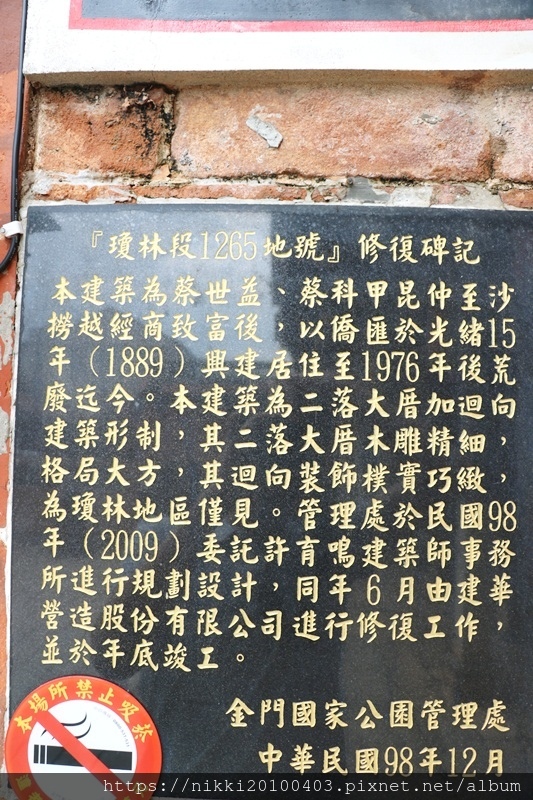 『瓊林段1265地號』修復碑記
本建築為蔡世益、蔡科甲昆仲至沙
撈越經商致富後，以僑匯於光緒15
年（1889）興建居住至1976年後荒
廢迄今。本建築為二落大厝加迴向
建築形制，其二落大厝木雕精細，
格局大方，其迴向裝飾樸實巧緻，
為瓊林地區僅見。管理處於民國98
年（2009）委託許育鳴建築師事務
所進行規劃設計，同年6月由建華
營造股份有限公司進行修復工作，
並於年底竣工。
金門國家公園管理處
中華民國98年12月
本場所禁止吸菸
https://nikki20100403.pixnet.net/album